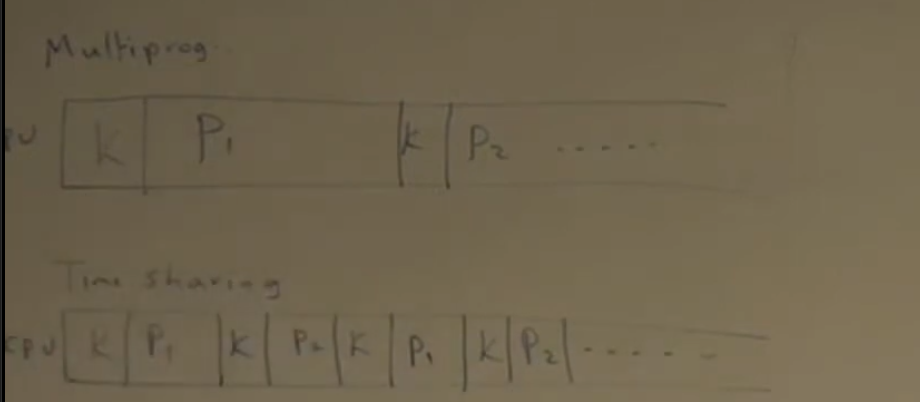 Multiprog.
PU K P1 K P2 .....
Time sharing
CPU K P1 K P2 K P1 K P2 .....